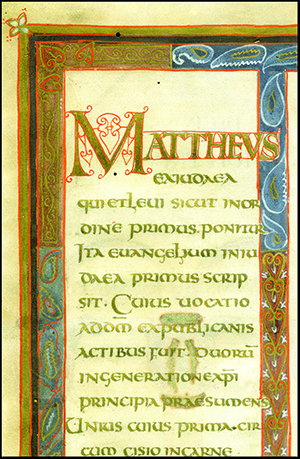 MATTHEVS
EXIUDAEA
QUIETLEUI SICUT INOR
DINE PRIMUS. PONITUR
ITA EUANGELIUM INIU
DAEA PRIMUS SCRIP
SIT. CUIUS UOCATIO
ADDM̄ EXPUBLICANIS
ACTIBUS FUIT. DUORŪ
INGENERATIONEXP̄I
PRINCIPIA PRAESUMENS
UNIUS CUIUS PRIMA·CIR
CUM CISIO INCARNE